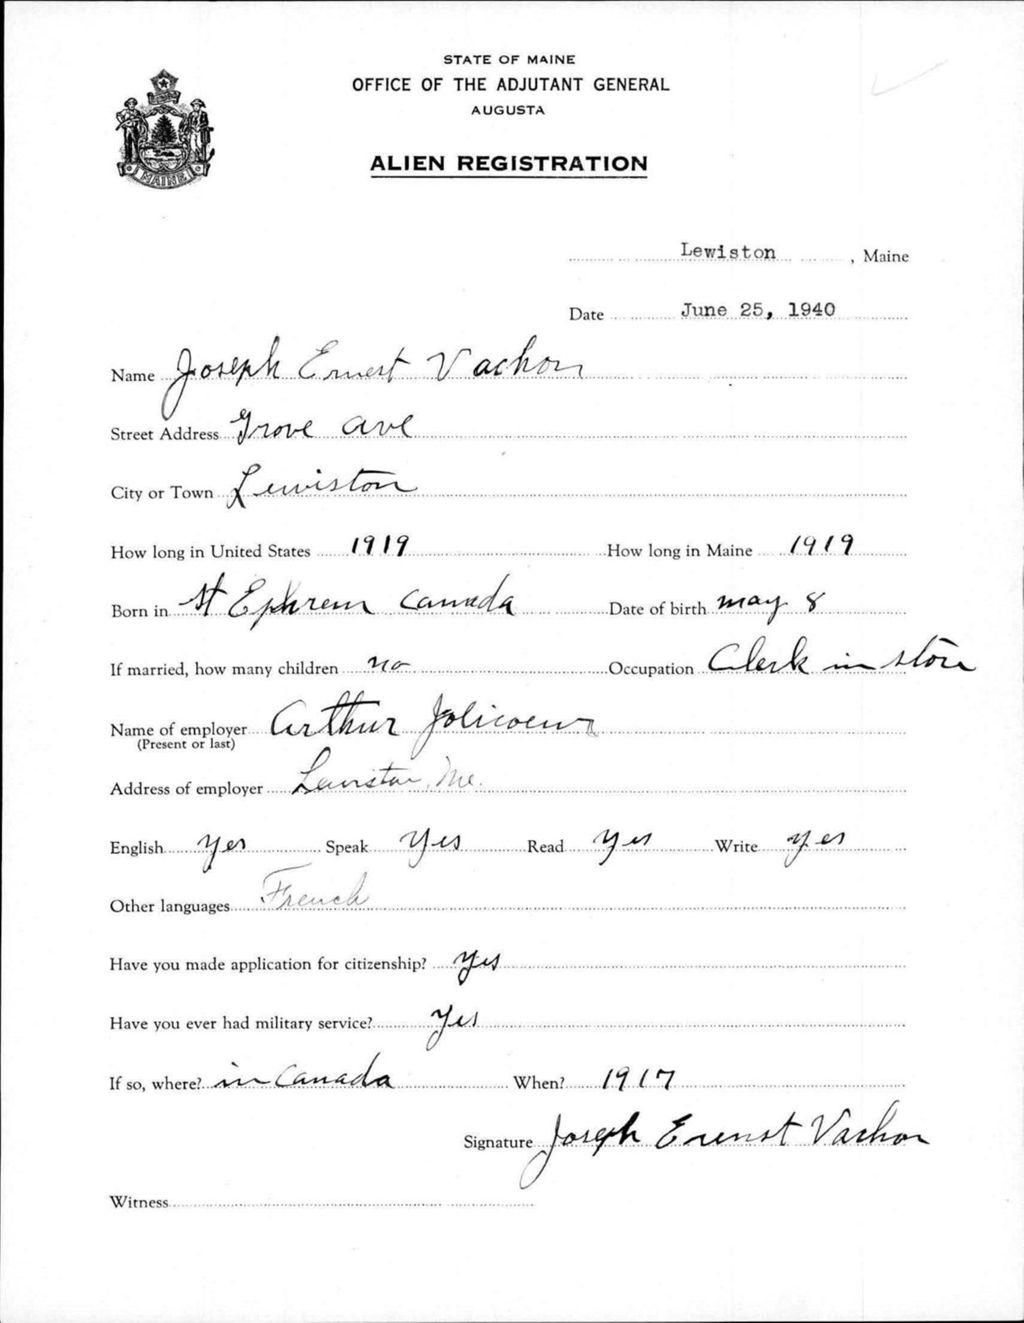 STATE OF MAINE
OFFICE OF THE ADJUTANT GENERAL
AUGUSTA
ALIEN REGISTRATION
MAINE
Lewiston, Maine
Date June 25, 1940
Name Joseph Ernest Vachon
Street Address Grove Ave
City or Town Lewiston
How long in United States 1919 How long in Maine 1919
Born in St Ephrem Canada Date of birth May 8
If married, how many children no Occupation Clerk in store
Name of employer Arthur Jolicoeur
(Present or last)
Address of employer Lewiston, Me.
English yes Speak Yes Read Yes Write yes
Other languages French
Have you made application for citizenship? Yes
Have you ever had military service? Yes
If so, where? in Canada When? 1917
Signature Joseph Ernest Vachon
Witness